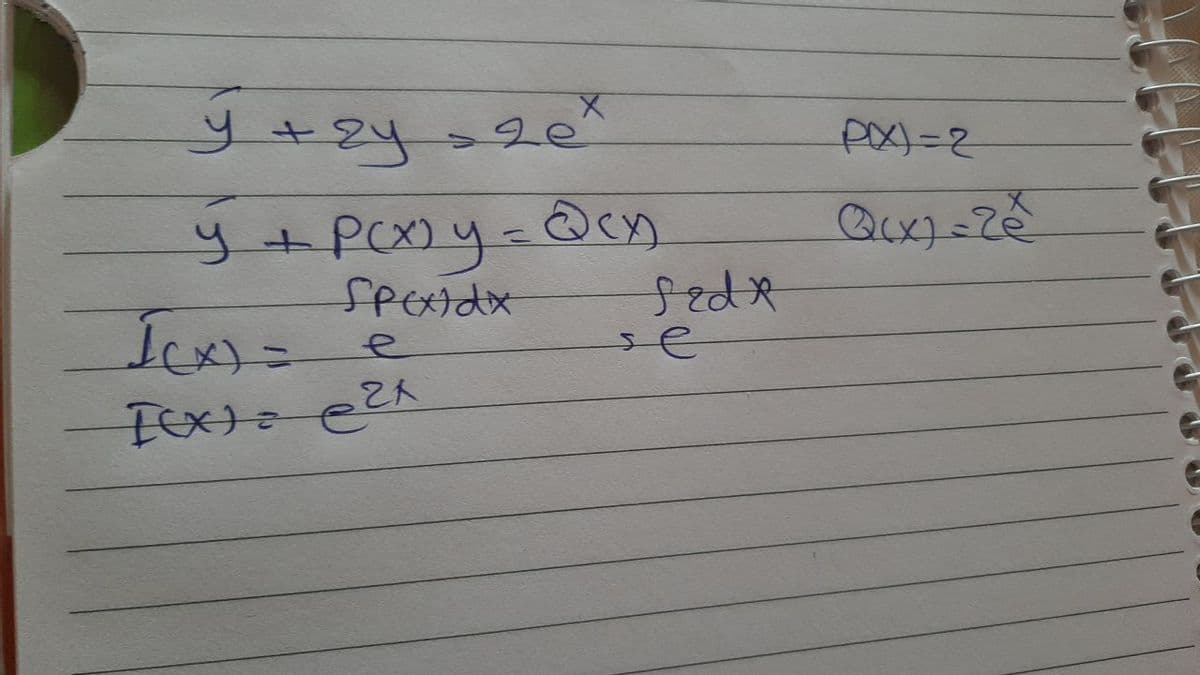 y̅ + 2y = 2e^x P(x)=2
y̅ + P(x) y = Q(x) Q(x)=2e^x
I(x) = e^∫P(x)dx = e^∫2dx
I(x) = e^2x